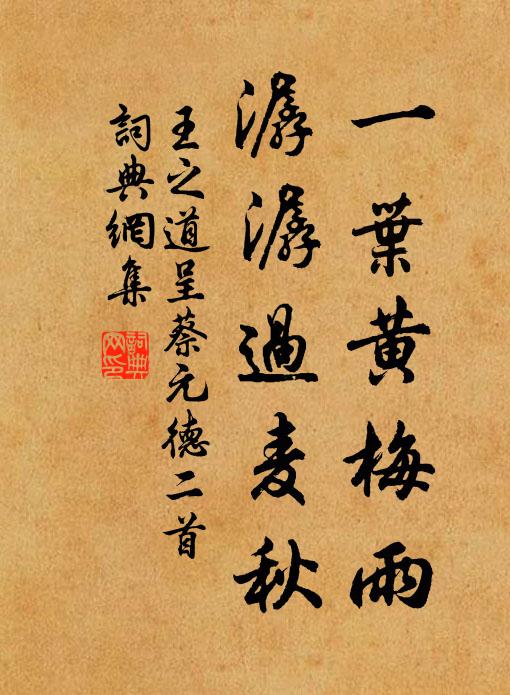 一葉黄梅雨
潺潺過麦秋
王之道呈蔡元德二首
詞典網集
詞典
网印